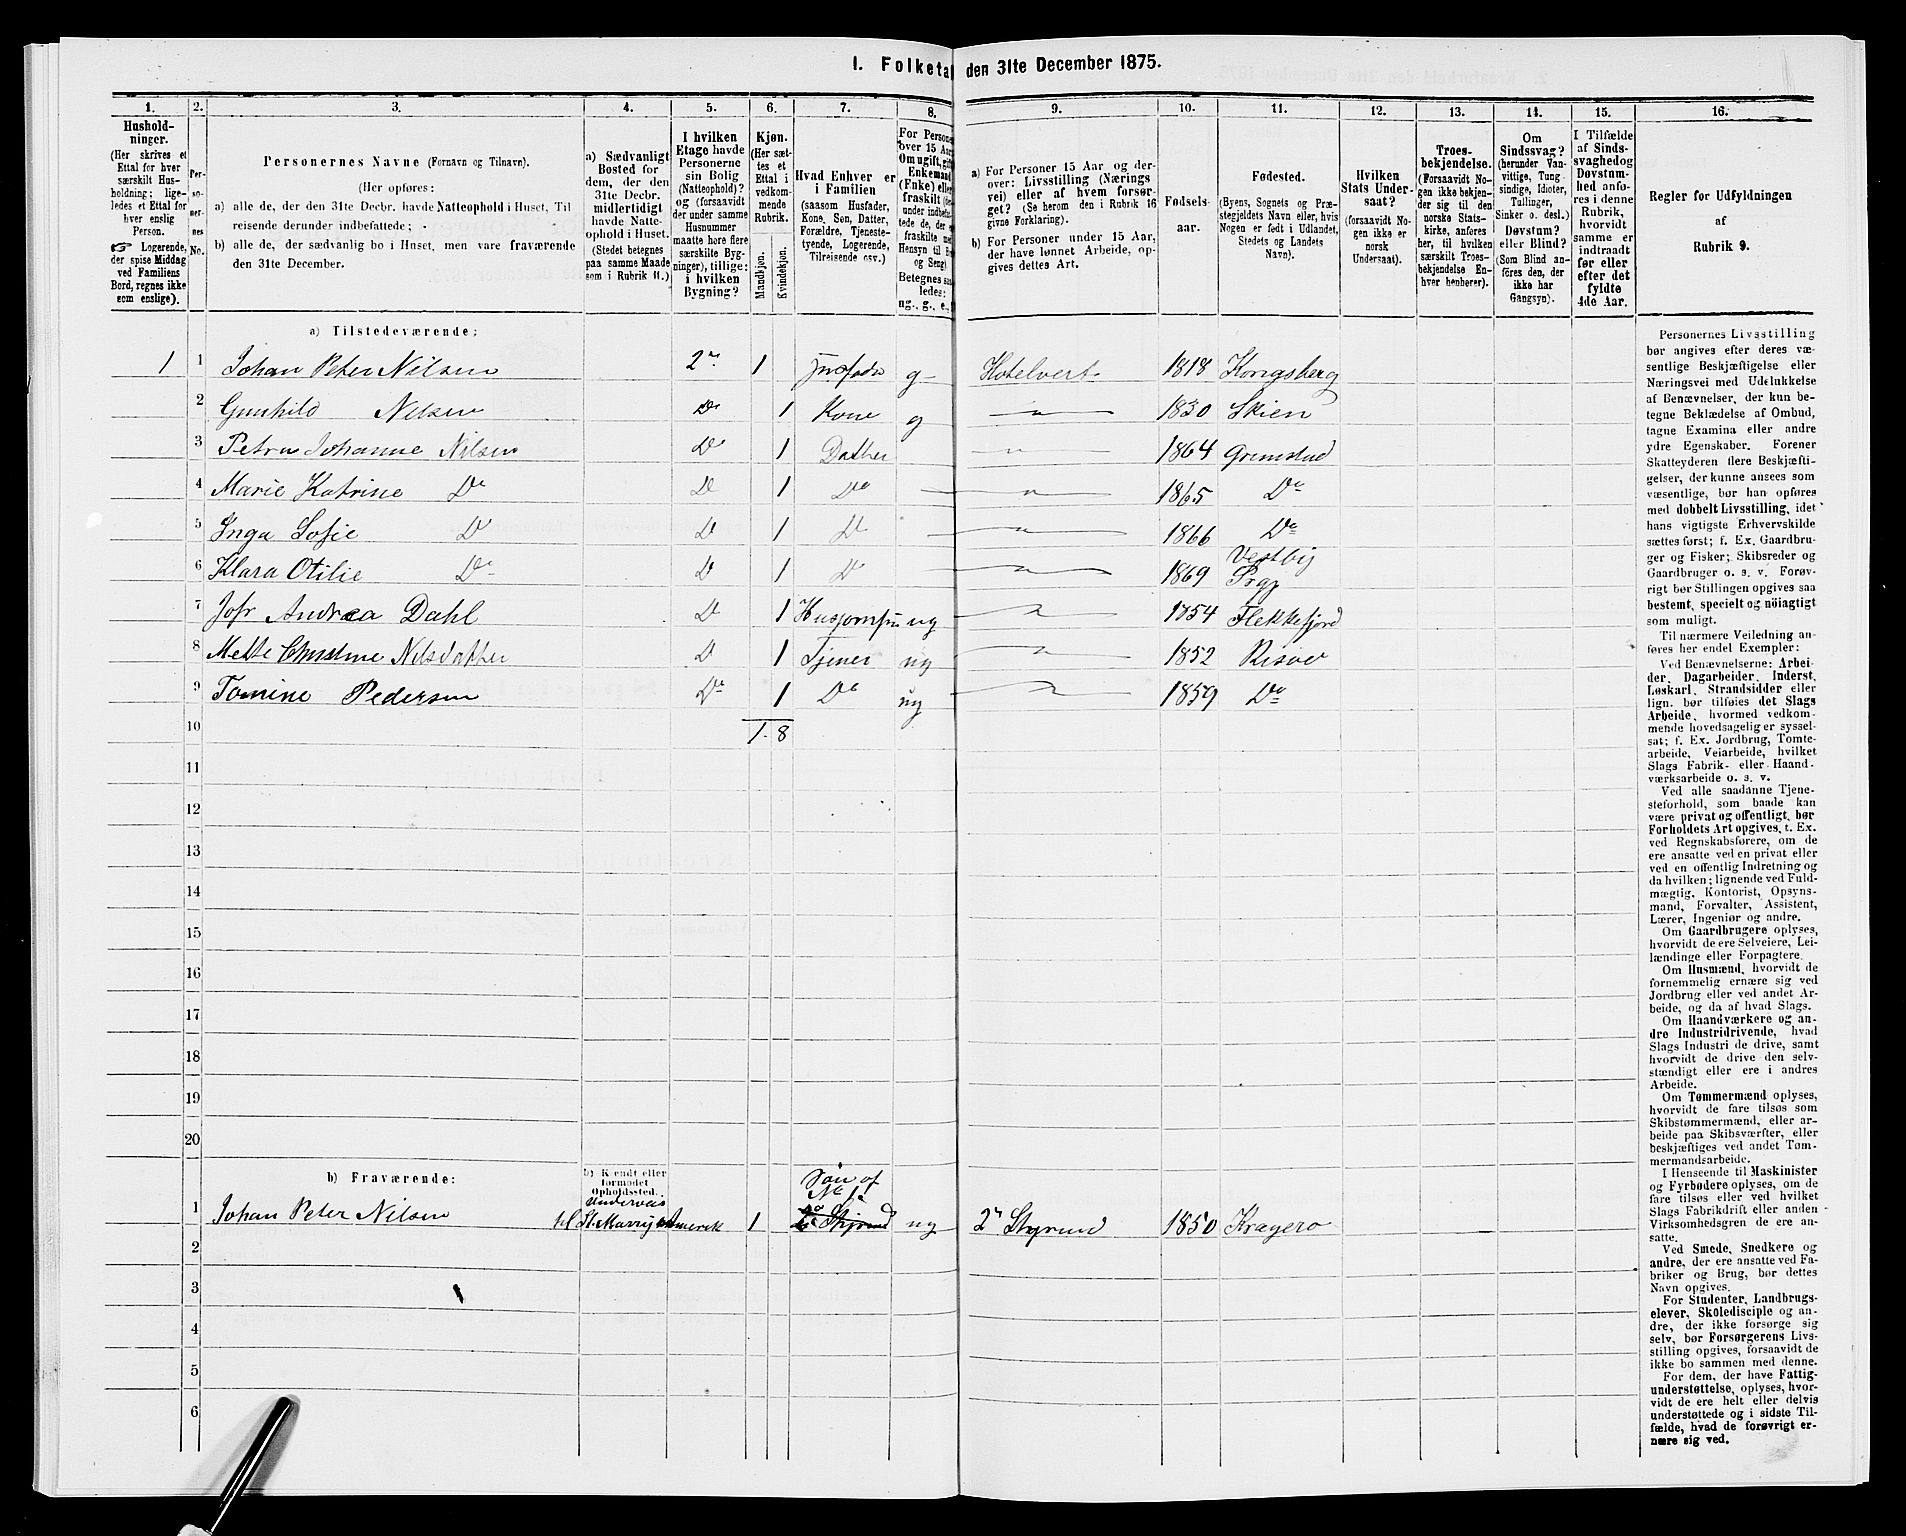 1. Folketa den 31te December 1875.
1. 2. 3. 4. 5. 6. 7. 8. 9. 10. 11. 12. 13. 14. 15. 16.
Hushold-
ninger.
(Her skrives et
Ettal for hver
særskilt Hus-
holdning; lige-
ledes et Ettal for
hver enslig
Person.
☞ Logerende,
der spise Middag
ved Familiens
Bord, regnes ikke
som enslige).
Per-
so-
ner-
nes
No.
Personernes Navne (Fornavn og Tilnavn).
(Her opføres:
a) alle de, der den 31te Decbr. havde Natteophold i Huset, Til
reisende derunder indbefattede;
b) alle de, der sædvanlig bo i Huset, men vare fraværende
den 31te December.
a) Sædvanligt
Bosted for
dem, der den
31te Decbr.
midlertidigt
havde Natte-
ophold i Huset.
(Stedet betegnes
paa samme Maade
som i Rubrik 11.)
I hvilken
Etage havde
Personerne
sin Bolig
(Natteophold)?
og (forsaavidt
der under samme
Husnummer
maatte høre flere
særskilte Byg-
ninger), tillige:
i hvilken
Bygning?
Kjøn.
(Her sæt-
tes et
Ettal i
vedkom-
mende
Rubrik.
Mandkjøn.
Kvindekjøn.
Hvad Enhver er
i Familien
(saasom Husfader,
Kone, Søn, Datter,
Forældre, Tjeneste-
tyende, Logerende,
Tilreisende osv.)
For Persone
over 15 Aar
Om ugift, gift
Enkemand
(Enke) eller
fraskilt (der-
under indbefat-
tede de, der er
fraskilte med
Hensyn til Bo
og Seng).
Betegnes saa
ledes:
ug., g., e.,
a) For Personer 15 Aar og der-
over: Livsstilling (Nærings
vei) eller af hvem forsør-
get? (Se herom den i Rubrik 16
givne Forklaring).
b) For Personer under 15 Aar,
der have lønnet Arbeide, op-
gives dettes Art.
Fødsels-
aar.
Fødested.
(Byens, Sognets og Præ-
stegjeldets Navn eller, hvis
Nogen er født i Udlandet,
Stedets og Landets
Navn).
Hvilken
Stats Under-
saat?
(forsaavidt No-
gen ikke er
norsk
Undersaat).
Troes-
bekjendelse.
(Forsaavidt No-
gen ikke bekjen-
der sig til den
norske Stats-
kirke, anføres
her, til hvilken
særskilt Troes-
bekjendelse En-
hver henhører).
Om
Sindssvag?
(herunder Van-
vittige, Tung
sindige, Idioter,
Tullinger,
Sinker o. desl.)
Døvstum?
eller Blind?
(Som Blind an-
føres den, der
ikke har
Gangsyn).
I Tilfælde
af Sinds-
svaghed og
Døvstum-
hed anfø-
res i denne
Rubrik,
hvorvidt
samme er
indtraadt
før eller
efter det
fyldte
4de Aar.
Regler for Udfyldningen
af
Rubrik 9.
a) Tilstedeværende:
1 1 Johan Peter Nilsen 2" 1 g Hotelvert 1818 Kongsberg
2 Gunhild Nilsen Do 1 Kone g " 1830 Skien
3 Petra Johanne Nilsen Do 1 Datter " 1864 Grimstad
4 Marie Katrine Do Do 1 Do " 1865 Do
5 Inga Sofie Do Do 1 Do " 1866 Do
6 Klara Otilie Do Do 1 Do " 1869 Vestby Prgj
7 Jofr Andrea Dahl Do 1 Husjomfru ug " 1854 Flekkefjord
8 Mette Christine Nilsdatter Do 1 Tjener ug " 1852 Risøer
9 Tomine Pedersen Do 1 Do ug " 1859 Do
10 1. 8
11
12
13
14
15
16
17
18
19
20
b) Fraværende:
b) Kjendt eller
formodet
Opholdssted.
Søn af
No 1.
Underveis
1 Johan Peter Nilsen til St. Marrys Amerik 1 ug 2" Styrmd 1850 Kragerø
2
3
4
5
6
Personernes Livsstilling
bør angives efter deres væ-
sentlige Beskjæftigelse eller
Næringsvei med Udelukkelse
af Benævnelser, der kun be-
tegne Beklædelse af Ombud,
tagne Examina eller andre
ydre Egenskaber. Forener
Skatteyderen flere Beskjæfti-
gelser, der kunne ansees som
væsentlige, bør han opføres
med dobbelt Livsstilling, idet
hans vigtigste Erhvervskilde
sættes først; f. Ex. Gaardbru-
ger og Fisker; Skibsreder og
Gaardbruger o. s. v. Forøv-
rigt bør Stillingen opgives saa
bestemt, specielt og nøiagtigt
som muligt.
Til nærmere Veiledning an-
føres her endel Exempler:
Ved Benævnelserne: Arbei-
der, Dagarbeider, Inderst,
Løskarl, Strandsidder eller
lign. bør tilføies det Slags
Arbeide, hvormed vedkom-
mende hovedsagelig er syssel-
sat; f. Ex. Jordbrug, Tomte-
arbeide, Veiarbeide, hvilket
Slags Fabrik- eller Haand-
værksarbeide o. s. v.
Ved alle saadanne Tjene-
steforhold, som baade kan
være privat og offentligt, bør
Forholdets Art opgives, t. Ex.
ved Regnskabsførere, om de
ere ansatte ved en privat eller
ved en offentlig Indretning og
da hvilken; lignende ved Fuld-
mægtig, Kontorist, Opsyns-
mand, Forvalter, Assistent,
Lærer, Ingeniør og andre.
Om Gaardbrugere oplyses,
hvorvidt de ere Selveiere, Lei-
lændinge eller Forpagtere.
Om Husmænd, hvorvidt de
fornemmelig ernære sig ved
Jordbrug eller ved andet Ar-
beide, og da af hvad Slags.
Om Haandværkere og an-
dre Industridrivende, hvad
Slags Industri de drive, samt
hvorvidt de drive den selv-
stændigt eller ere i andres
Arbeide.
Om Tømmermænd oplyses,
hvorvidt de fare tilsøs som
Skibstømmermænd, eller ar-
beide paa Skibsværfter, eller
beskjæftiges ved andet Tøm-
mermandsarbeide.
I Henseende til Maskinister
og Fyrbødere oplyses, om de
fare tilsøs eller ved hvilket
Slags Fabrikdrift eller anden
Virksomhedsgren de ere an-
satte.
Ved Smede, Snedkere og
andre, der ere ansatte ved Fa-
briker og Brug, bør dettes
Navn opgives.
For Studenter, Landbrugs-
elever, Skoledisciple og an-
dre, der ikke forsørge sig
selv, bør Forsørgerens Livs-
stilling opgives, forsaavidt de
ikke bo sammen med denne.
For dem, der have Fattig-
understøttelse, oplyses, hvor-
vidt de ere helt eller delvis
understøttede og i sidste Til-
fælde, hvad de forøvrigt er-
nære sig ved.